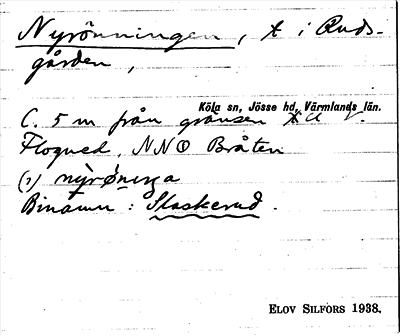 Nyrönningen, t i Ruds-
gården,
Köla sn, Jösse hd, Värmlands län.
C. 5 m från gränsen
Flogned, NNO Bråten
(?) nyrønınga
Binamn: Slaskerud.
ELOV SILFORS 1938.